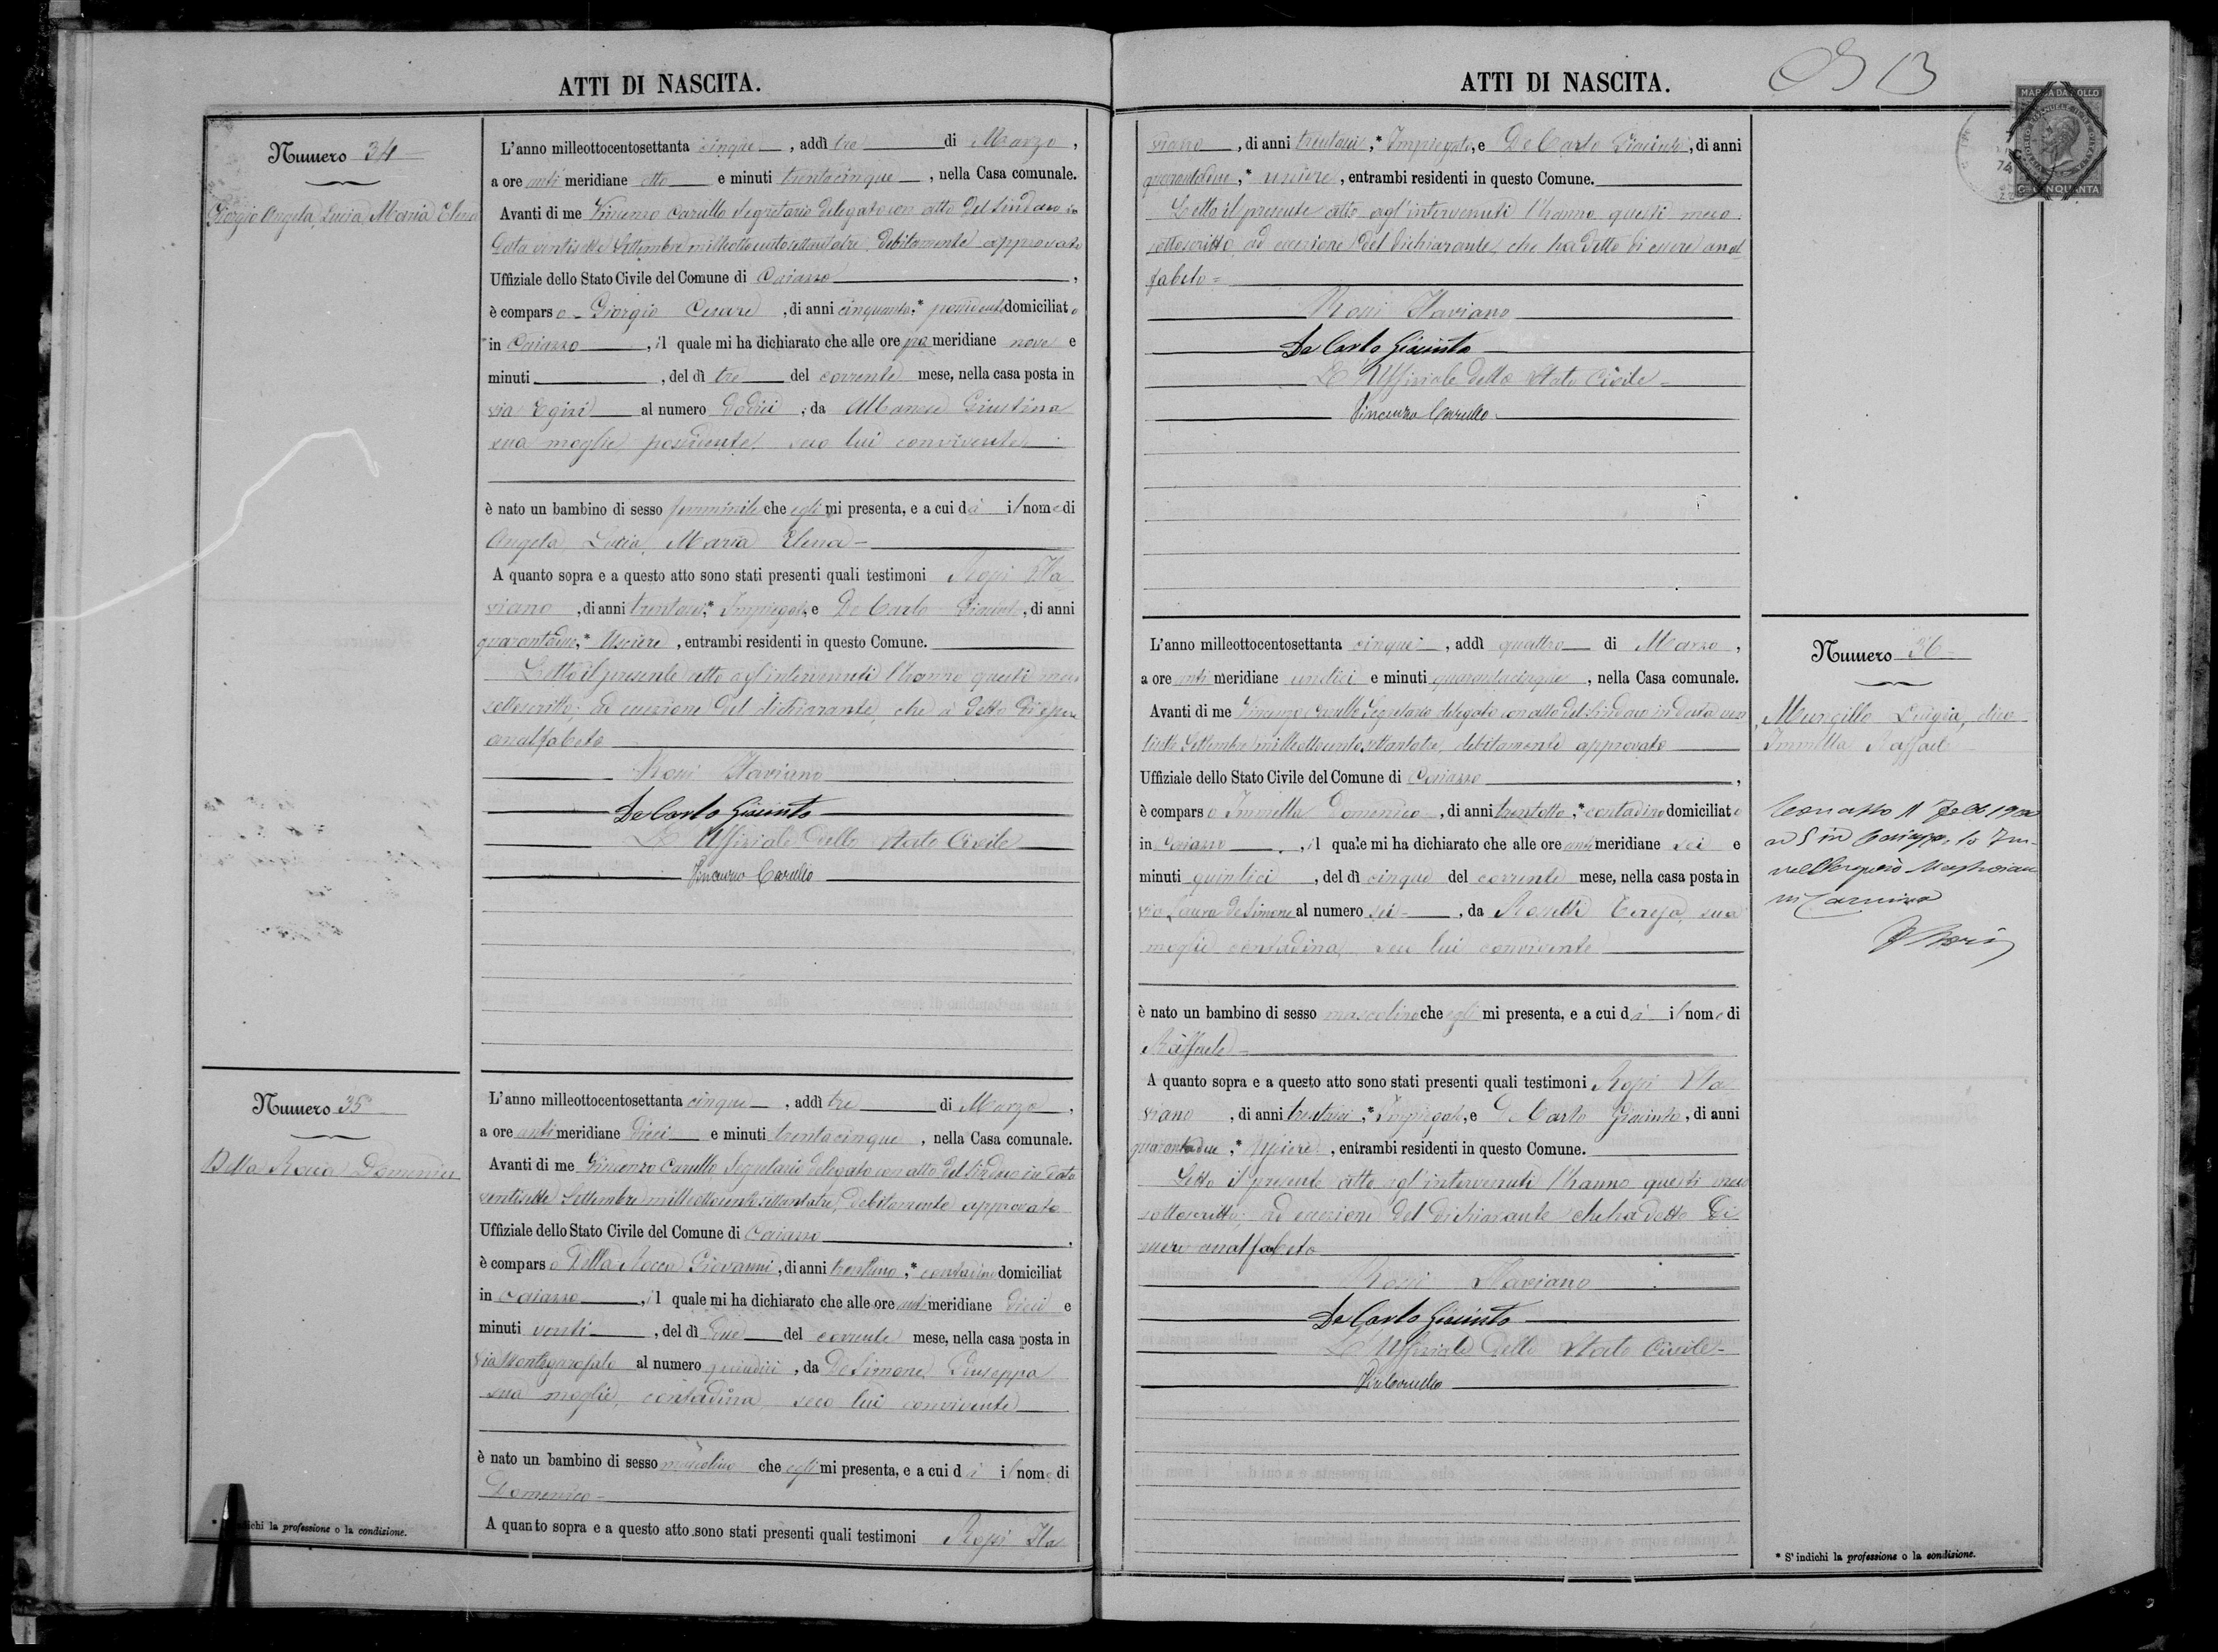 ATTI DI NASCITA.
Numero 34
Giorgio Angela, Lucia, Maria Elena
L'anno milleottocentosettanta cinque, addì tre di Marzo,
a ore anti meridiane otto e minuti trentacinque, nella Casa comunale.
Avanti di me Vincenzo Carullo Segretario delegato con atto del Sindaco in
data ventisette Settembre milleottocentosettantatre, debitamente approvato
Uffiziale dello Stato Civile del Comune di Caiazzo,
è comparso Giorgio Cesare, di anni cinquanta,* possidente domiciliato
in Caiazzo, il quale mi ha dichiarato che alle ore meridiane nove e
minuti, del dì tre del corrente mese, nella casa posta in
via Egizi al numero dodici, da Albanese Giustina
sua moglie possidente seco lui convivente
è nato un bambino di sesso femminile che egli mi presenta, e a cui dà il nome di
Angela, Lucia, Maria Elena
A quanto sopra e a questo atto sono stati presenti quali testimoni Rossi Fla
viano, di anni trentasei,* Impiegato, e De Carlo Giacinto, di anni
quarantadue,* Usciere, entrambi residenti in questo Comune.
Letto il presente atto agl'intervenuti l'hanno questi meco
sottoscritto, ad eccezione del dichiarante, che à detto di essere
analfabeto
Rossi Flaviano
De Carlo Giacinto
L'Uffiziale dello Stato Civile
Vincenzo Carullo
Numero 35
Della Rocca Domenico
L'anno milleottocentosettanta cinque, addì tre di Marzo,
a ore antimeridiane dieci e minuti trentacinque, nella Casa comunale.
Avanti di me Vincenzo Carullo Segretario delegato con atto del Sindaco in data
ventisette Settembre milleottocentosettantatre, debitamente approvato
Uffiziale dello Stato Civile del Comune di Caiazzo,
è comparso Della Rocca Giovanni, di anni trentuno,* contadino domiciliat
in Caiazzo, il quale mi ha dichiarato che alle ore antimeridiane dieci e
minuti venti, del dì due del corrente mese, nella casa posta in
via Montegarofalo al numero quindici, da De Simone Giuseppa
sua moglie, contadina, seco lui convivente
è nato un bambino di sesso mascolino che egli mi presenta, e a cui dà il nome di
Domenico
A quanto sopra e a questo atto sono stati presenti quali testimoni Rossi Fla
* S'indichi la professione o la condizione.
ATTI DI NASCITA.
13
MARCA DA BOLLO
CINQUANTA
viano, di anni trentasei,* Impiegato, e De Carlo Giacinto, di anni
quarantadue,* usciere, entrambi residenti in questo Comune.
Letto il presente atto agl'intervenuti l'hanno questi meco
sottoscritto, ad eccezione del dichiarante, che ha detto di essere anal
fabeto
Rossi Flaviano
De Carlo Giacinto
L'Uffiziale dello Stato Civile
Vincenzo Carullo
L'anno milleottocentosettanta cinque, addì quattro di Marzo,
a ore anti meridiane undici e minuti quarantacinque, nella Casa comunale.
Avanti di me Vincenzo Carullo Segretario delegato con atto del Sindaco in data ven
tisette Settembre milleottocentosettantatre, debitamente approvato
Uffiziale dello Stato Civile del Comune di Caiazzo,
è comparso Domenico, di anni trentotto,* contadino domiciliato
in Caiazzo, il quale mi ha dichiarato che alle ore anti meridiane sei e
minuti quindici, del dì cinque del corrente mese, nella casa posta in
via Laura de Simone al numero sei, da Rossetti Teresa, sua
moglie contadina, seco lui convivente
è nato un bambino di sesso mascolino che egli mi presenta, e a cui dà il nome di
Raffaele
A quanto sopra e a questo atto sono stati presenti quali testimoni Rossi Fla
viano, di anni trentasei,* Impiegato, e De Carlo Giacinto, di anni
quarantadue,* Usciere, entrambi residenti in questo Comune.
Letto il presente atto agl'intervenuti l'hanno questi meco
sottoscritto, ad eccezione del dichiarante che ha detto di
essere analfabeto
Rossi Flaviano
De Carlo Giacinto
L'Uffiziale dello Stato Civile
Vin Carullo
Numero 36
Luigia, dico
Raffaele
in Caiazzo
Carmina
* S'indichi la professione o la condizione.